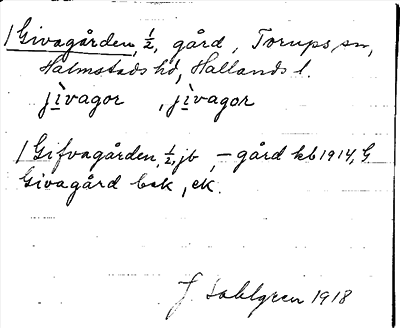 /Givagården, 1/2, gård, Torups sn,
Halmstads hd, Hallands l.
jìvagor , jìvagor
/Gifvagården, 1/2, jb, -gård kb 1914, G
Givagård bek, ek.
J. Sahlgren 1918